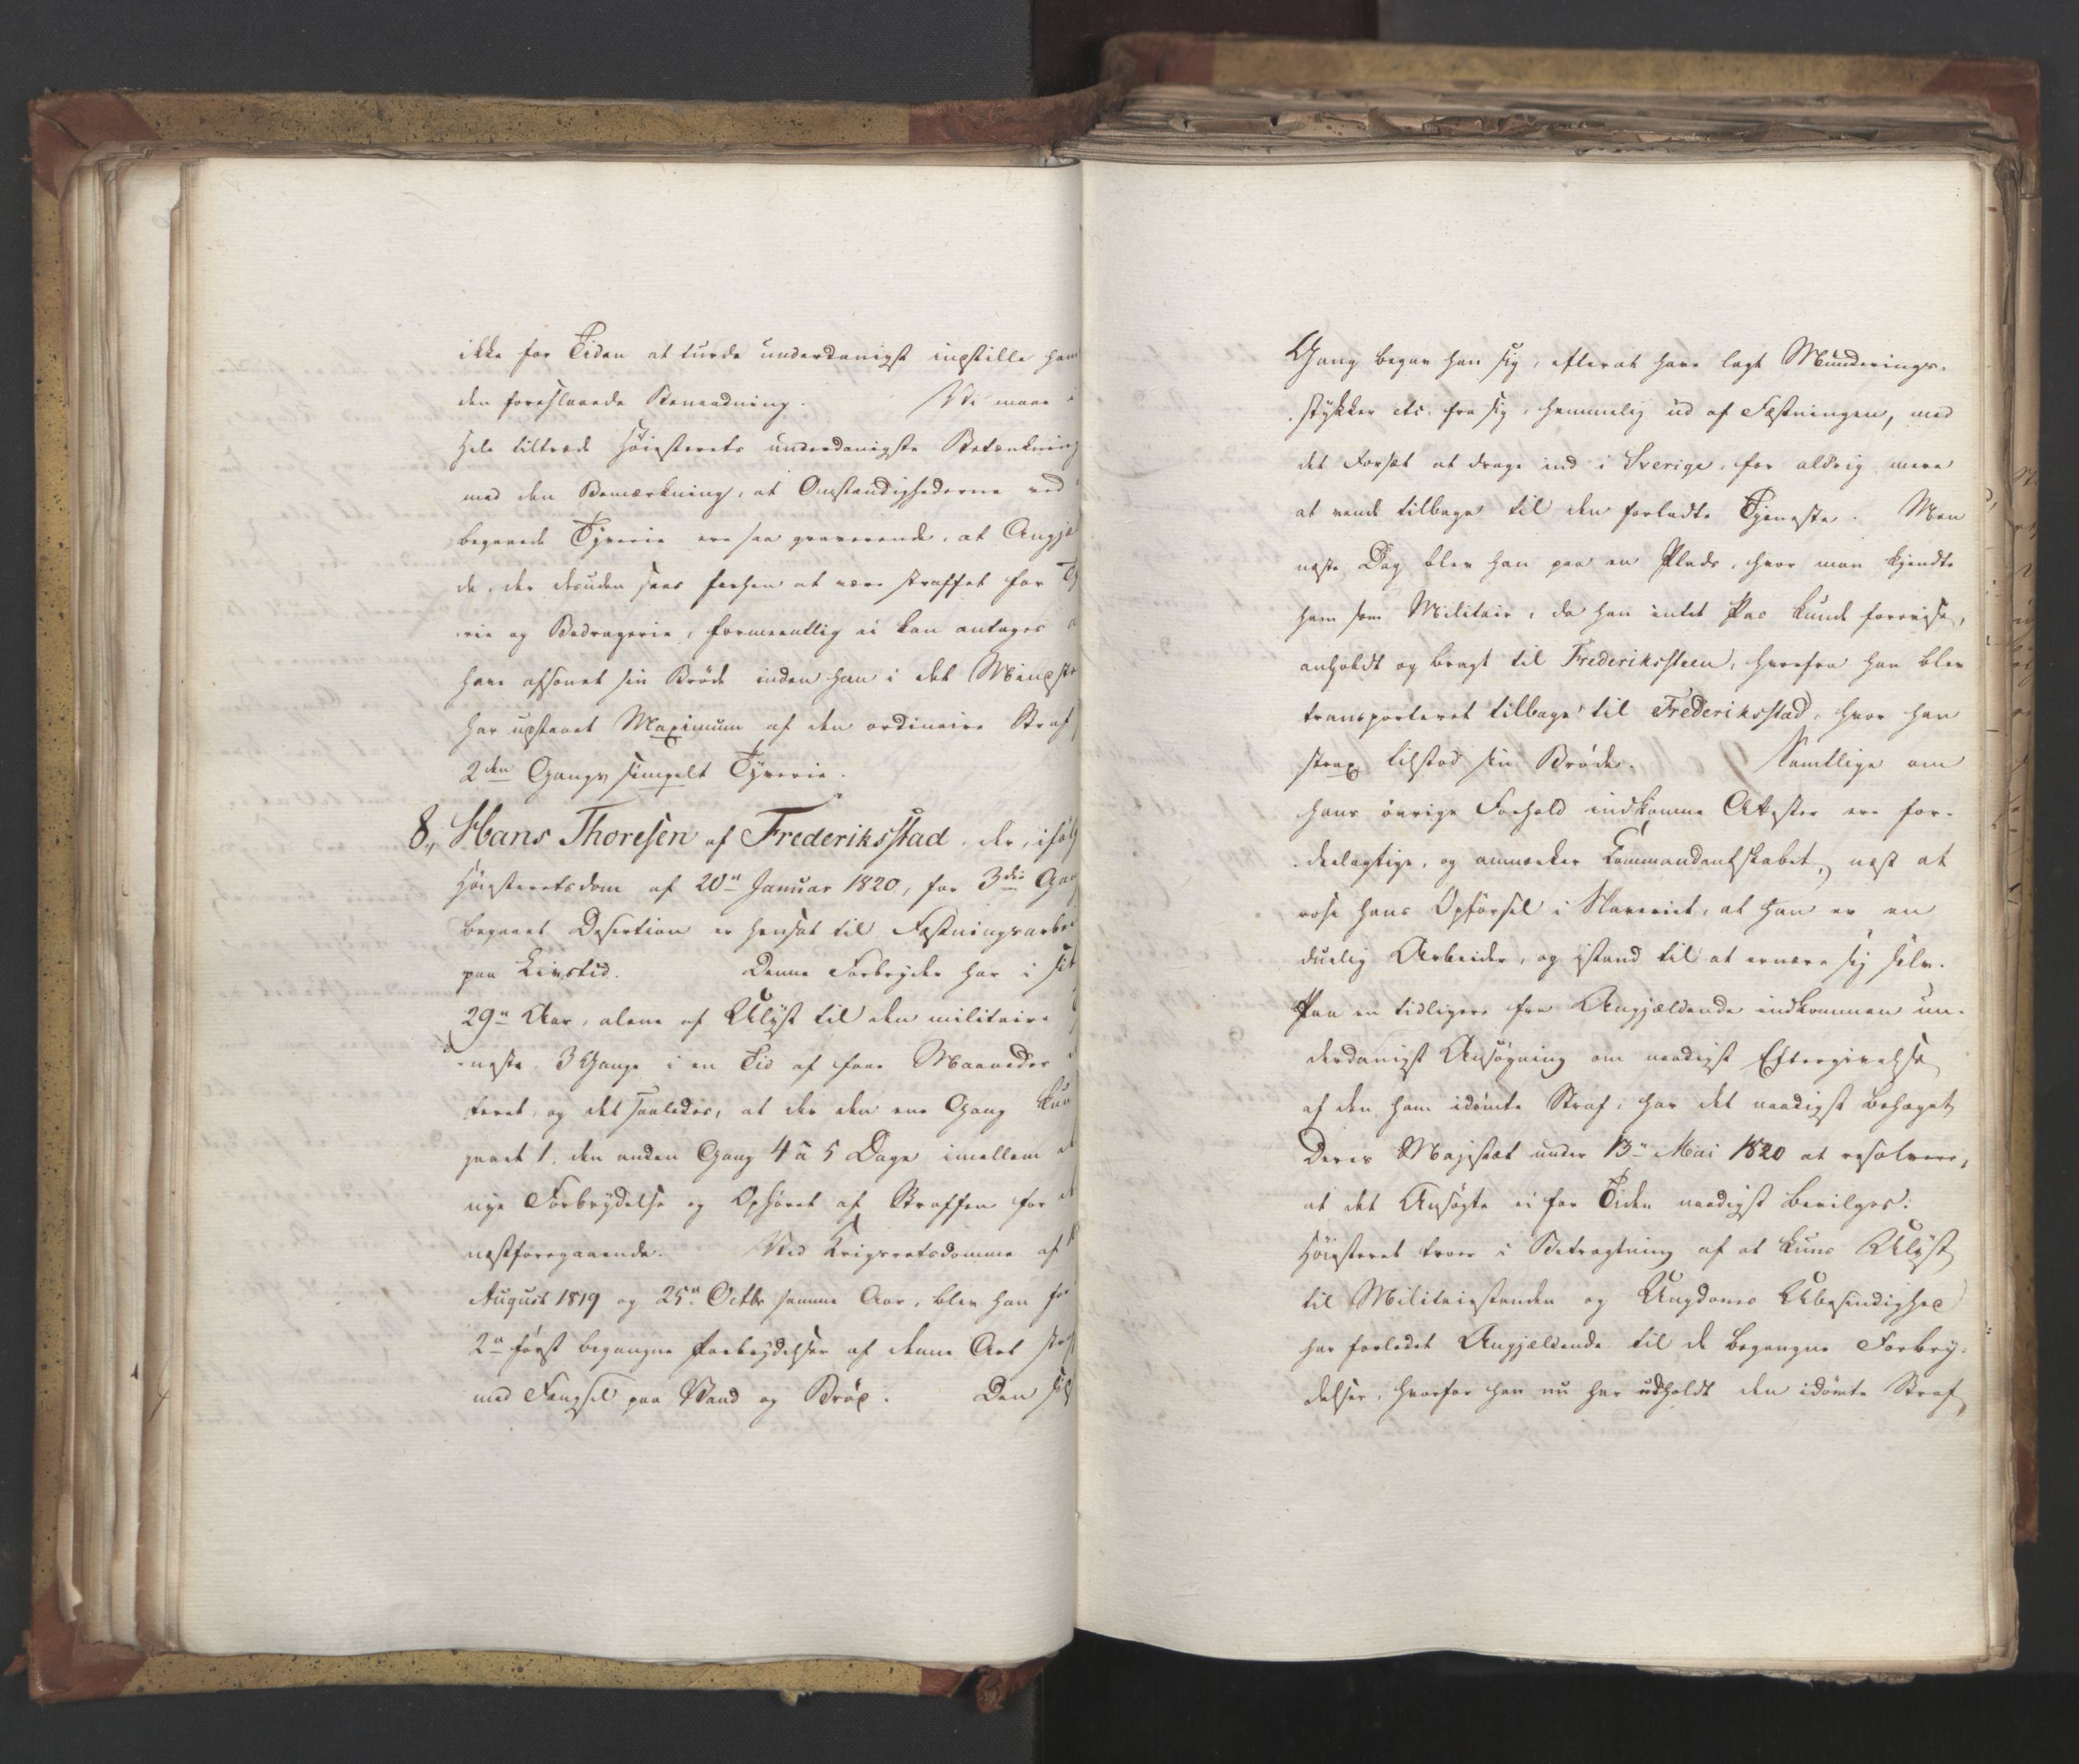 ikke for Tiden at turde underdanigst indstille ham
den foreslaaede Benaadning. Vi maae i
Hele tiltræde Høiesterets underdanigste Betænkning
med den Bemærkning, at Omstændighederne ved
begaaede Tyverie ere saa graverende, at Angjæ
de, der desuden sees forhen at være straffet for Ty
rie og Bedragerie, formeentlig ei kan antages a
have afsonet sin Brøde inden han i det Mindste
har udstaaet Maximum af den ordinaire Straf
2den Gangs simpelt Tyverie.
8, Hans Thoresen af Frederiksstad, der, ifølg
Høiesteretsdom af 20n Januar 1820, for 3die Gang
begaaet Desertion er hensat til Fæstningsarbei
paa Livstid. Denne Forbryder har i sit
29n Aar, alene af Ulyst til den militaire
neste 3 Gange i en Tid af faae Maaneder
teret, og det saaledes, at der den ene Gang kun
gaaet 1, den anden Gang 4 à 5 Dage imellem d
nye Forbrydelse og Ophøret af Straffen for d
næstforegaaende. Ved Krigsretsdomme af
August 1819 og 25n Octbr samme Aar, blev han for
2n først begangne Forbrydelser af denne Art straf
med Fængsel paa Vand og Brød. Den sid
Gang begav han sig, efterat have lagt Munderings-
stykker etc. fra sig, hemmelig ud af Fæstningen, med
det Forsæt at drage ind i Sverige, for aldrig mere
at vende tilbage til den forladte Tjeneste. Men
næste Dag blev han paa en Plads, hvor man kjendte
ham som Militair, da han intet Pas kunde forevise,
anholdt og bragt til Frederiksteen, hvorfra han blev
transporteret tilbage til Frederiksstad, hvor han
strax tilstod sin Brøde. Samtlige om
hans øvrige Forhold indkomne Attester ere for-
deelagtige, og anmærker Commandantskabet, næst at
rose hans Opførsel i Slaveriet, at han er en
duelig Arbeider, og istand til at ernære sig selv.
Paa en tidligere fra Angjældende indkommen un-
derdanigst Ansøgning om naadigst Eftergivelse
af den ham idømte Straf, har det naadigst behaget
Deres Majestæt under 13n Mai 1820 at resolvere,
at det Ansøgte ei for Tiden naadigst bevilges:
Høiesteret troer i Betragtning af at kuns Ulyst
til Militairstanden og Ungdoms Ubesindighed
har forledet Angjældende til de begangne Forbry-
delser, hvorfor han nu har udholdt den idømte Straf